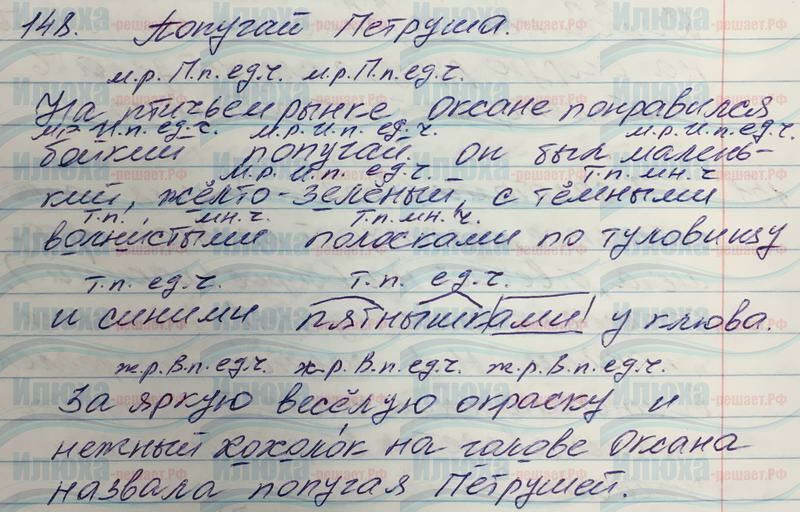 148. Попугай Петруша.
м.р.П.п.ед.ч. м.р.П.п.ед.ч.
На птичьем рынке Оксане понравился
м.р.И.п. ед.ч. м.р.И.п. ед.ч. м.р.И.п.ед.ч.
бойкий попугай. он был малень-
м.р.И.п. ед.ч. т.п. мн.ч
кий, жёлто-зелёный, с тёмными
т.п. мн.ч. т.п.мн.ч.
волнистыми полосками по туловищу
т.п. ед.ч. т.п. ед.ч.
и синими пятнышками у клюва.
ж.р.В.п.ед.ч. ж.р.В.п.ед.ч. ж.р.В.п.ед.ч.
За яркую весёлую окраску и
нежный хохолок на голове Оксана
назвала попугая Петрушей.